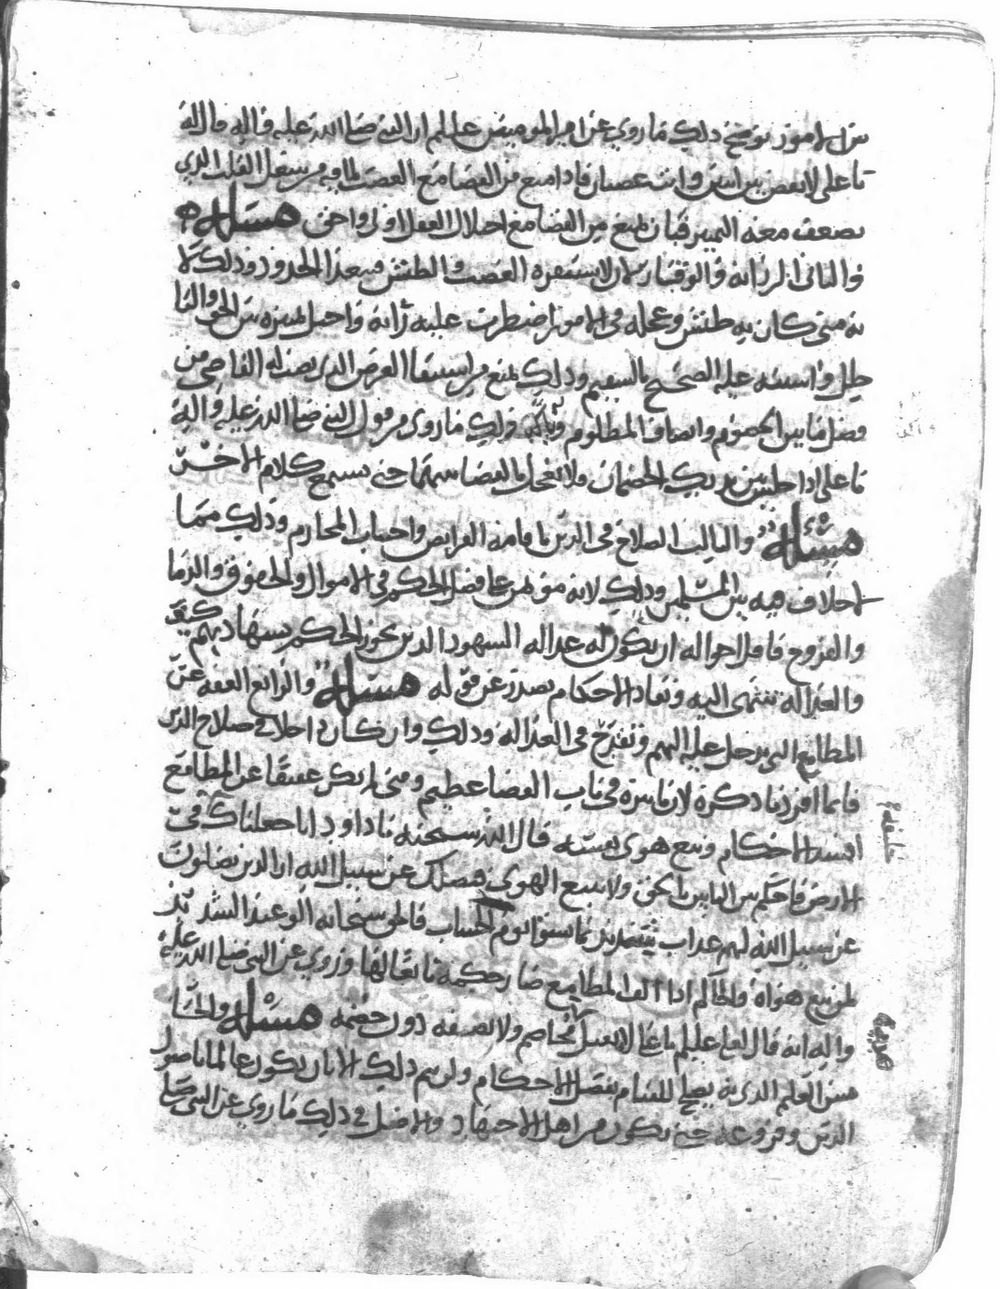 من الامور يوضح ذلك ما روي عن امير المومنين علىه لم ان النبي صلى الله عليه واله قال له
يا على لا تقض بين اثنين وانت غضبان فاذا منع من القضا مع الغضب لما فيه من شغل القلب الذي
يضعف معه التمييز فبان يمنع من القضا مع اختلال العقل اولى واحق مسئله
والثانى الرزانه والوقار لان لا يستفزه الغضب والطيش فيتعدا الحدود وذلك لا
نه متى كان به طيش وعجله فى الامور اضطرب عليه رايه واختل تمييزه بين الحق والبا
طل واشتبه عليه الصحيح بالسقيم وذلك يمنع من استيفا الغرض الذى يصب له القاضى من
فصل ما بين الخصوم وانصاف المظلوم ويؤكد ذلك ما روى من قول النبي صلى الله عليه واله
يا على اذا جلس بين يديك الخصمان فلا تعجل بالقضا بينهما حتى تسمع كلام الاخر
مسئله والثالث الصلاح فى الدين باقامة الفرايض واجتناب المحارم وذلك مما
لا خلاف فيه بين المسلمين وذلك لانه مؤتمن على فصل الحكم فى الاموال والحقوق والدما
والفروج فاقل احواله ان يكون له عداله الشهود الذين يجوز الحكم بشهادتهم كيف
والعداله تنتهى اليه ونفاذ الاحكام يصدر عن قوله مسئله والرابع العفه عن
المطامع التى يدخل عليه التهم وتقدح فى العداله وذلك وان كان داخلا فى صلاح الدين
فانما افردنا ذكره لان تاثيره فى باب القضا عظيم ومتى لم يكن عفيفا عن المطامع
افسد الاحكام وتبع هوى نفسه قال الله سبحنه يا داود انا جعلناك فى
الارض فاحكم بين الناس بالحق ولا تتبع الهوى فيضلك عن سبيل الله ان الذين يضلون
عن سبيل الله لهم عذاب شديد بما نسوا يوم الحساب فالحق سبحانه الوعيد الشديد
لمن تبع هواه والحاكم اذا الف المطامع صار حكمه تابعا لها وروي عن النبي صلى الله عليه
واله انه قال لعلي عليلم يا علي لا تقبل مخاصم ولا تضيفه دون خصمه مسئله والخا
مس العلم الذى به يصلح للقيام بفصل الاحكام ولن يتم ذلك الا بان يكون عالما باصول
الدين وفروعه حتى يكون من اهل الاجتهاد والاصل فى ذلك ما روي عن النبي صلى
خليفة